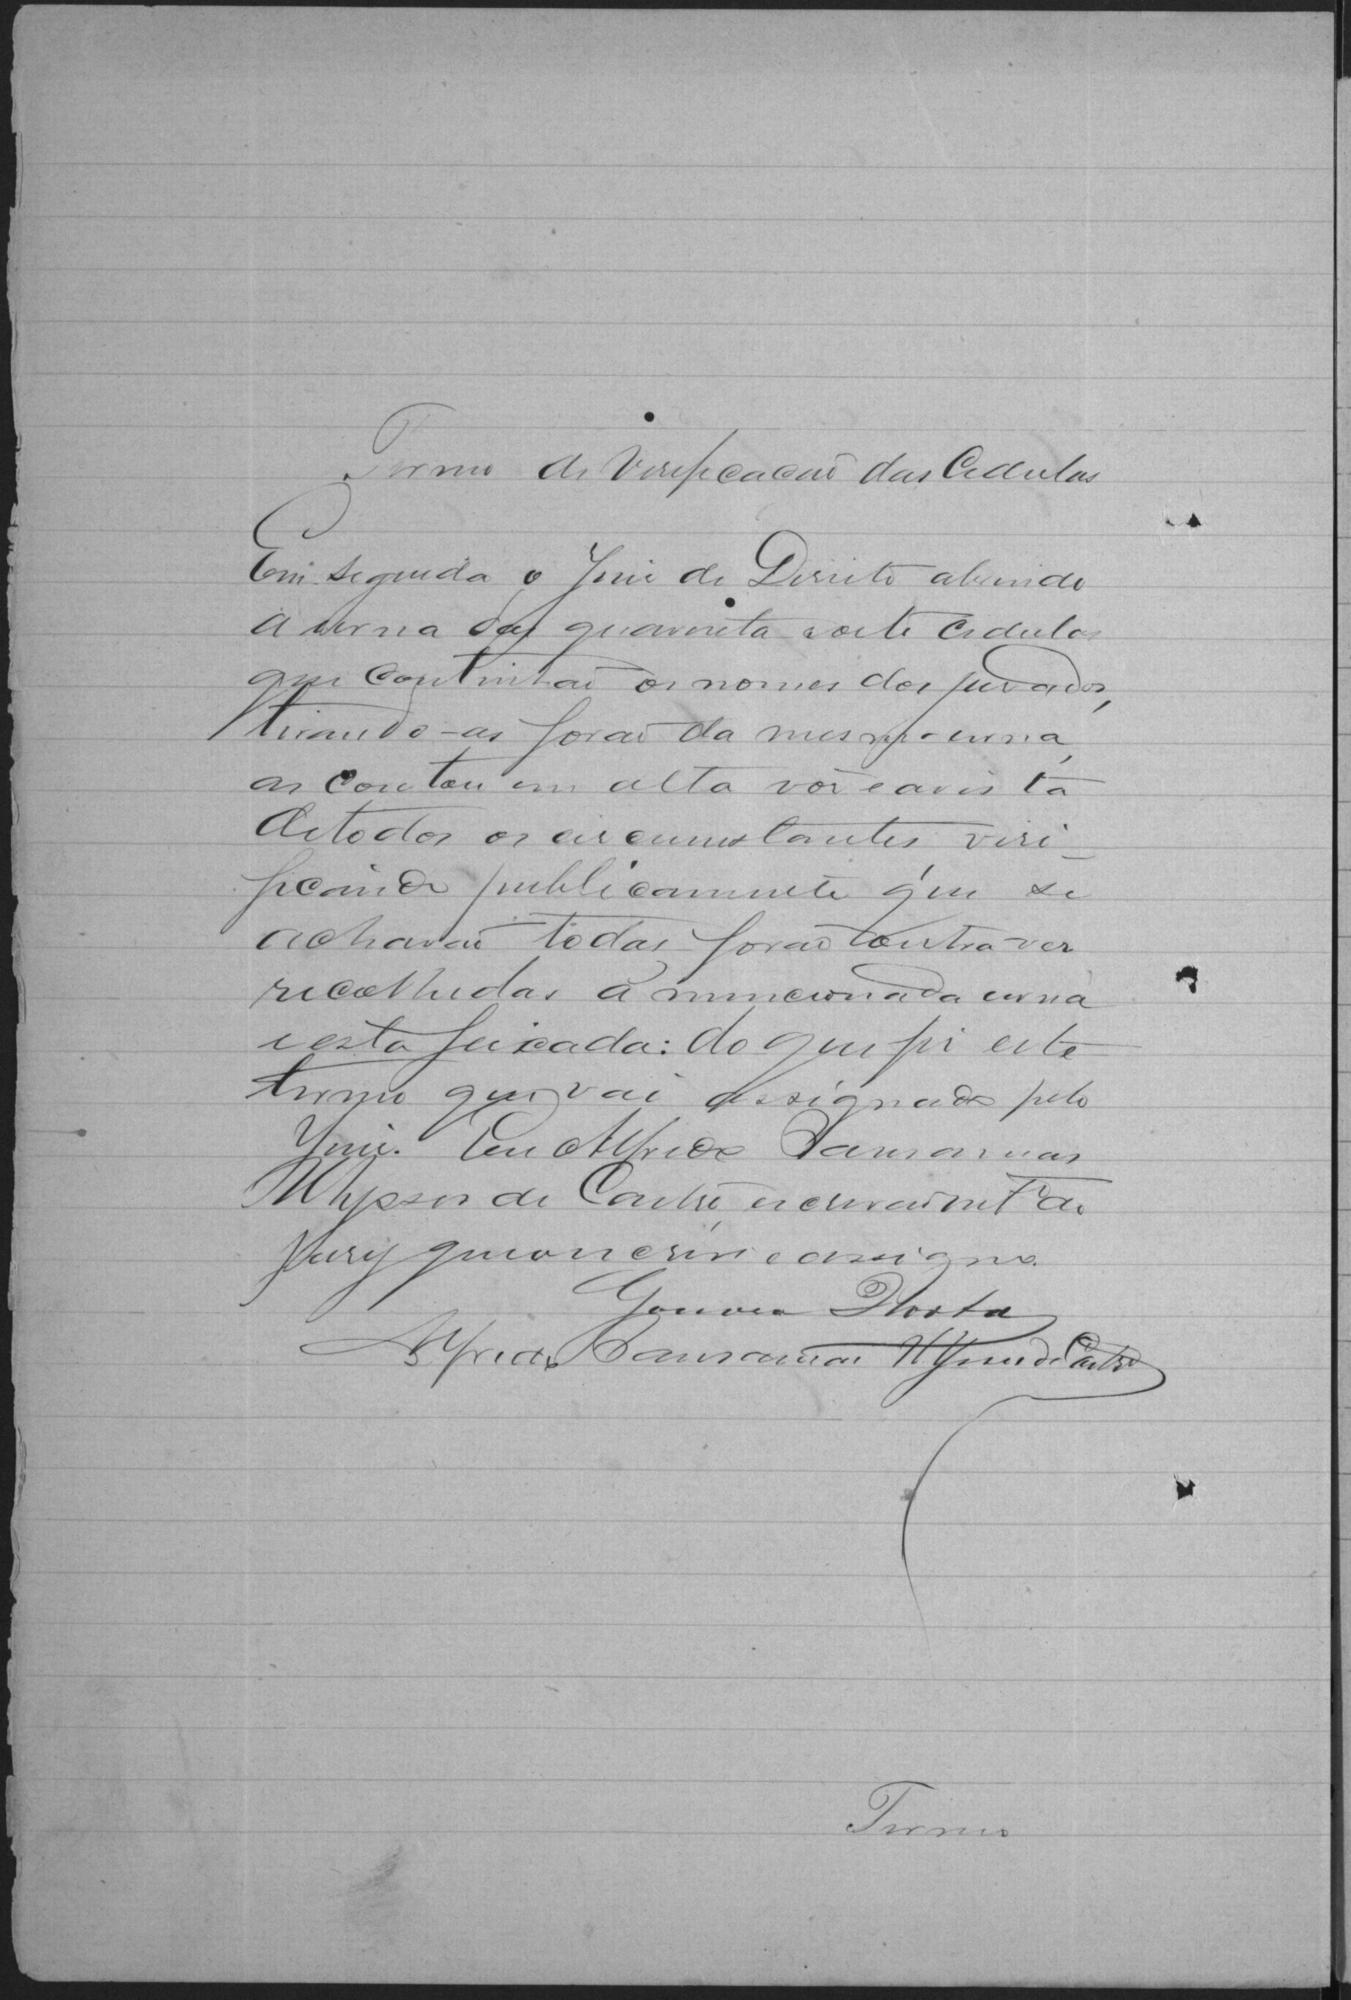 Termo de Verificação das Cedulas
Em seguida o Juiz de Direito abrindo
a urna das quarenta e oito cedulas
que continhão os nomes dos jurados,
tirando-as fora da mesma urna,
as contou em alta voz e a vista
de todos os circumstantes viri-
ficando publicamente que se
achavão todas forão outra vez
recolhidas a mencionada urna
e esta feixada: do que fiz este
termo que vai assignado pelo
Juiz. Eu Alfredo
Ulysses de Castro, escrivão do
Jury que o escrivi e assigno.
Gouvea Horta
Alfredo Ulysses de Castro
Termo